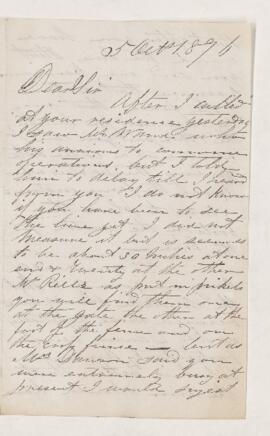 5 Oct 1876
Dear Sir
After I called
at your residence yesterday
I saw Mr who
was anxious to commence
operations, but I told
him to delay till I heard
from you I do not know
if you have been to see
the line yet I did not
measure it but it seemed
to be about 30 inches at one
end & twenty at the other
Mr has put in pickets
you will find them one
at the gate the other at the
foot of the fence and on
the fence — but as
Mrs said you
were extremely busy at
present I would